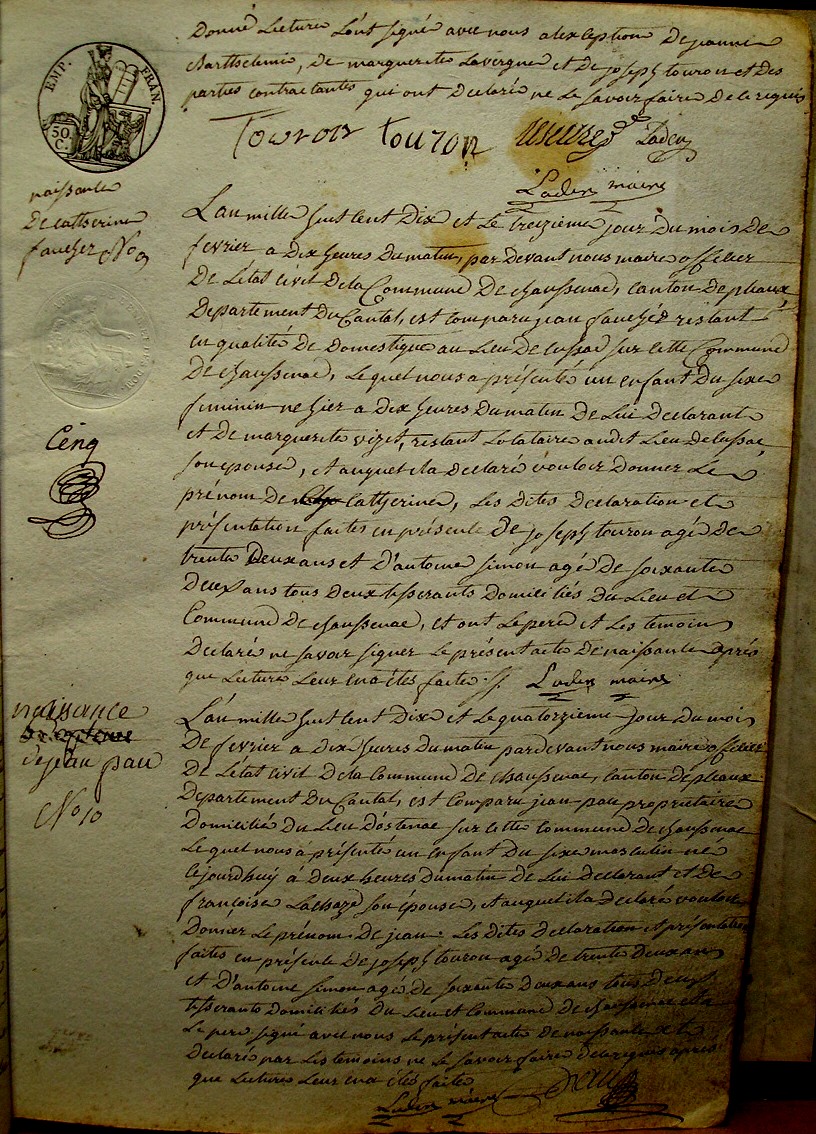 donné lecture l'ont signé avec nous a lexception de jeanne
Barthelemie, de marguerite Lavergne et de joseph touron et des
parties contractantes qui ont declaré ne le savoir faire de ce requis
Touron touron Laden
Laden maire
EMP. FRAN.
50 C.
naissance
de catherine
fauchez No 9
L'an mille huit cent dix et le treizieme jour du mois de
fevrier a dix heures du matin, par devant nous maire officier
de L'etat civil de la Commune de chaussenac, canton de pleaux
departement du Cantal, est comparu jean fauchéz restant
en qualité de domestique au Lieu de cussac sur cette Commune
de chaussenac, Lequel nous a présenté un enfant du sixe
feminin ne hier a dix heures du matin de Lui declarant
et de marguerite vizet, restant Locataire audit Lieu de cussac
son epouse, et auquel il a declaré vouloir donner Le
prénom de catherine, Les dites declaration et
présentation faites en présence de joseph touron agé de
trente deux ans et d'antoine simon agé de soixante
deux ans tous deux tisserants domiciliés du Lieu et
Commune de chaussenac, et ont Le pere et Les temoins
declaré ne savoir signer Le présent acte de naissance après
que Lecture Leur en a étés faite Laden maire
naisance
de jean pau
No 10
L'an mille huit cent dix et Le quatorzieme jour du mois
de fevrier a dix heures du matin par devant nous maire officier
de L'état civil de la Commune de chaussenac, canton de pleaux
departement du Cantal, est Comparu jean pau proprietaire
domicilié du Lieu d'ostenac sur cette commune de chaussenac
Lequel nous à présenté un enfant du sixe masculin né
cejourdhuy à deux heures du matin de Lui declarant et de
françoise Lachaze son épouse, et auquel il a declaré vouloir
donner Le prénom de jean. Les dites declaration et présentation
faites en présence de joseph touron agé de trente deux ans
et d'antoine simon agé de soixante deux ans tous deux
tisserants domiciliés du Lieu et Commune de chaussenac et a
Le pere signé avec nous Le présent acte de naissance et
declaré par Les temoins ne Le savoir faire de ce requis après
que Lecture Leur en a étés faite
Laden maire pau